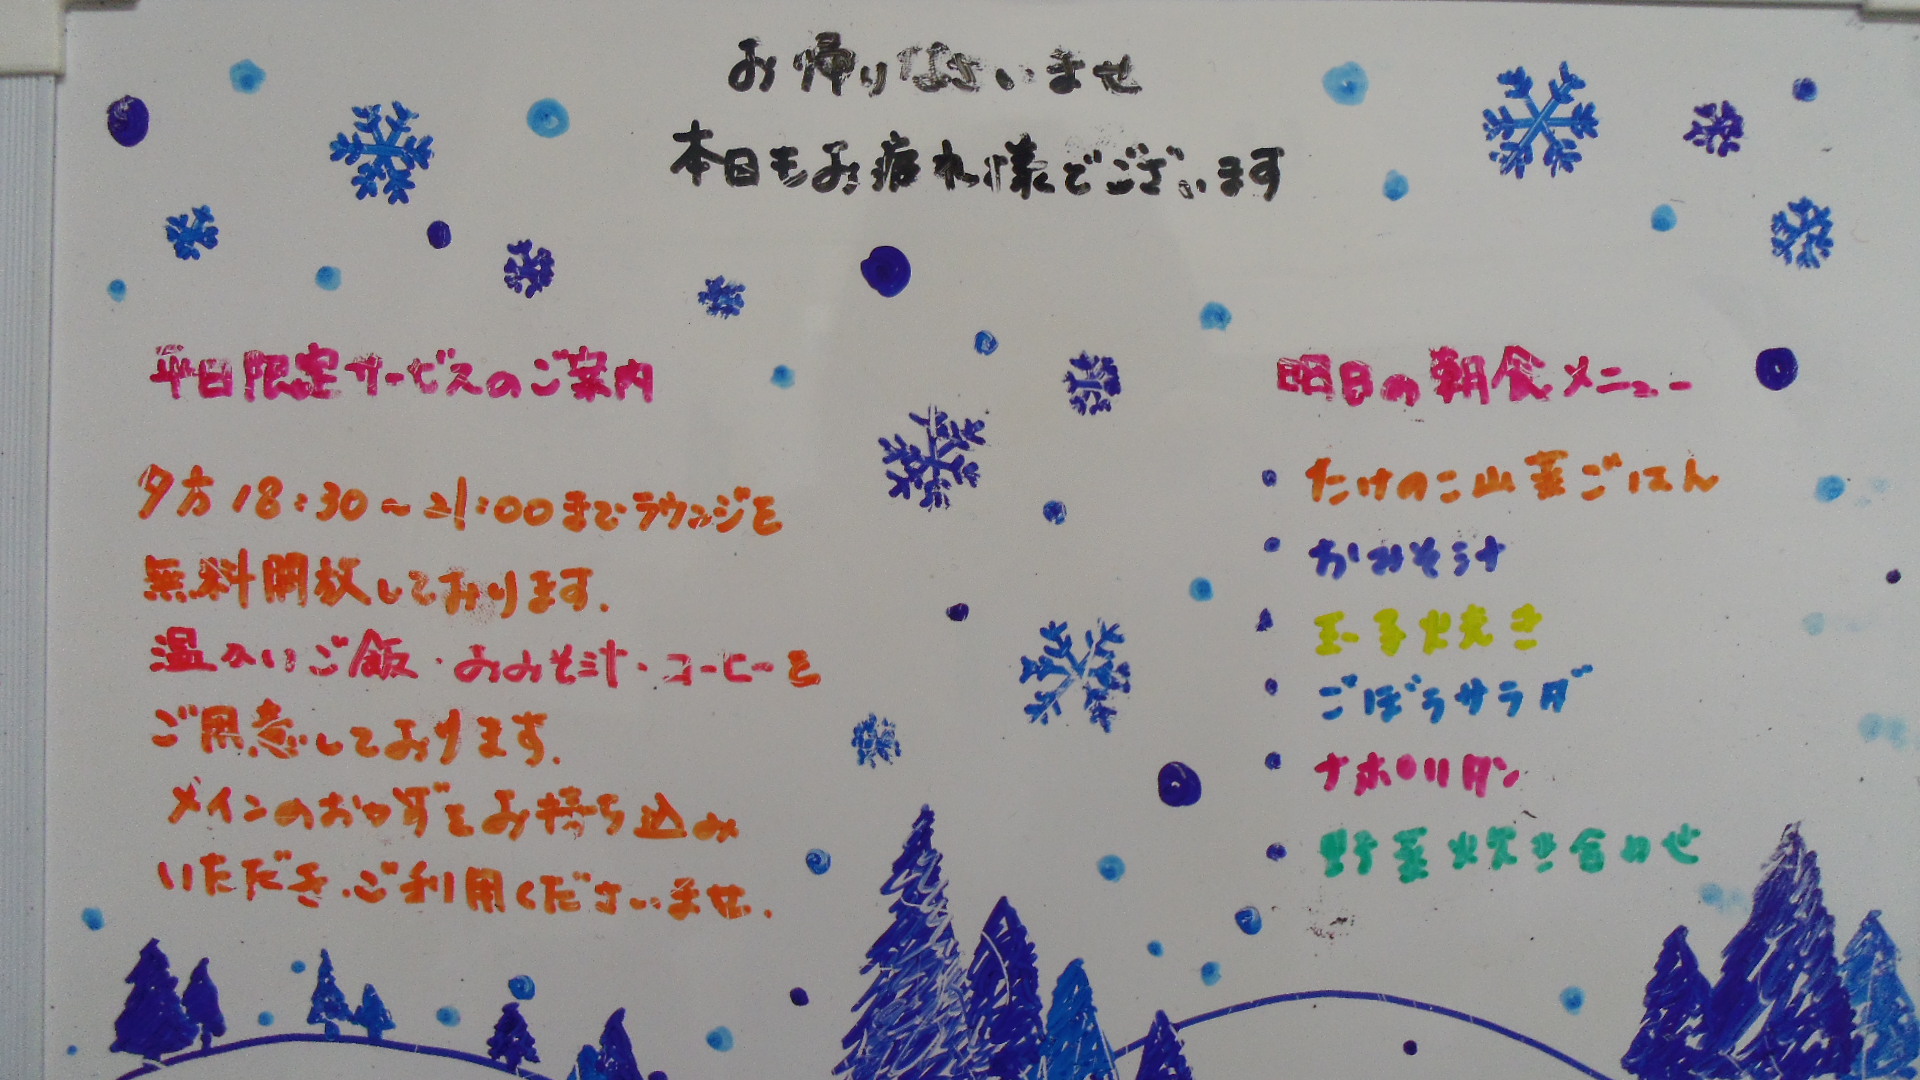 お帰りなさいませ
本日もお疲れ様でございます
平日限定サービスのご案内
夕方18:30~21:00までラウンジを
無料開放しております.
温かいご飯・おみそ汁・コーヒーを
ご用意しております.
メインのおかずをお持ち込み
いただき.ご利用くださいませ.
明日の朝食メニュー
・たけのこ山菜ごはん
・おみそ汁
・玉子焼き
・ごぼうサラダ
・ナポリタン
・野菜炊き合わせ